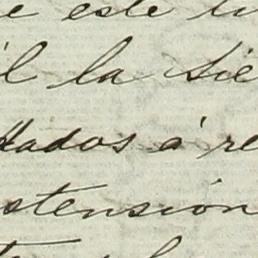 e este
l la sie
dados á re
stensión